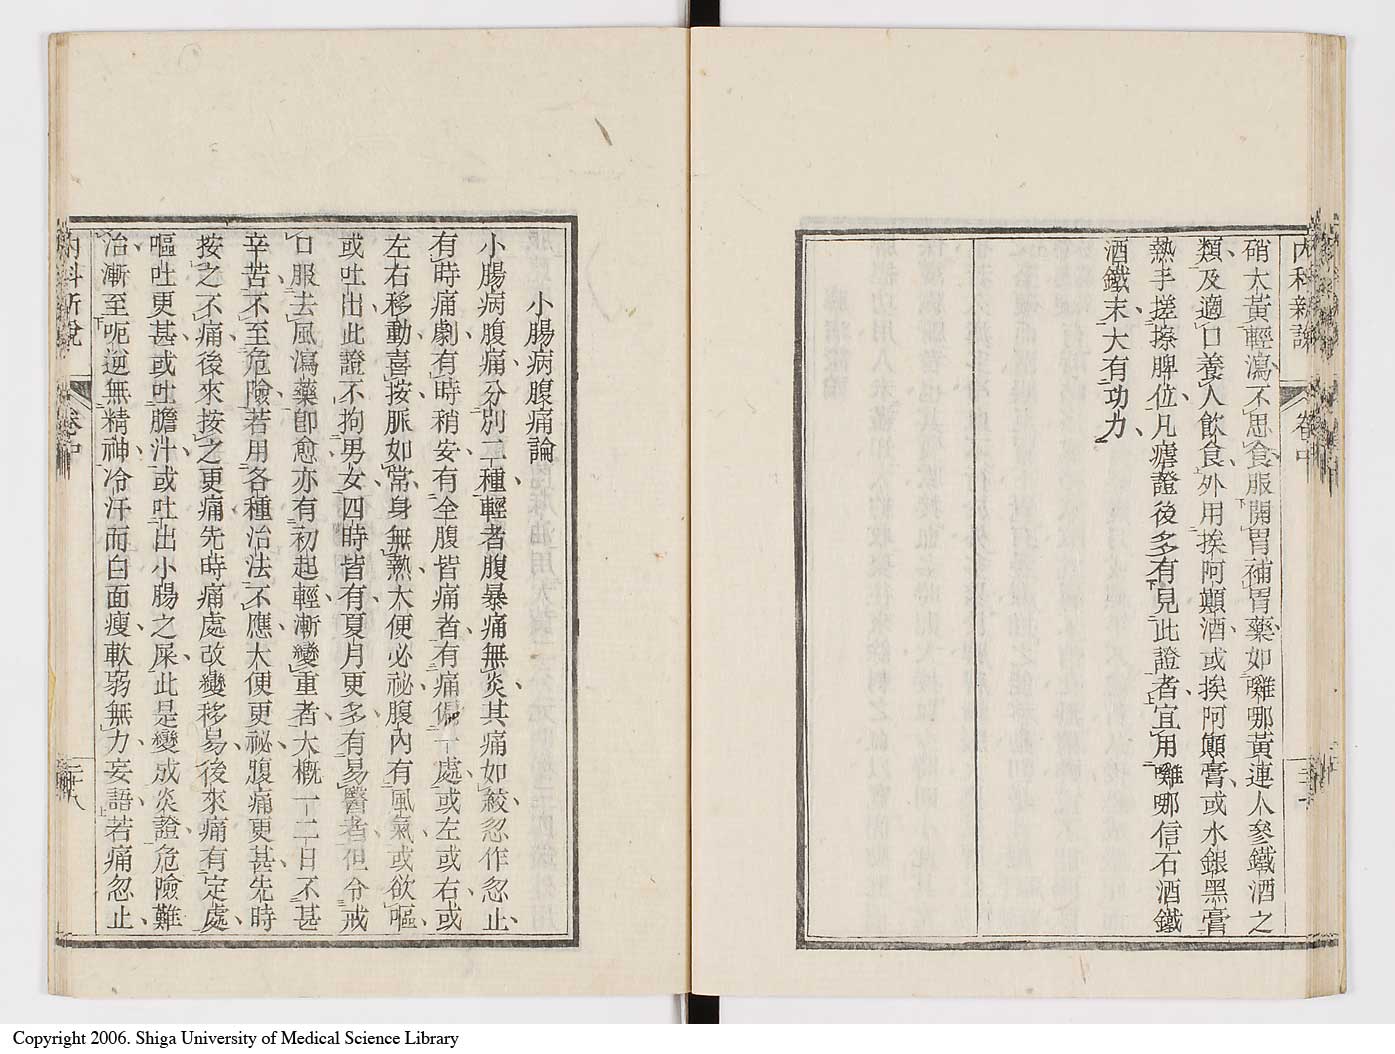 內科新說
卷中
硝大黃輕瀉不思食服開胃補胃藥如雞哪黃連人參鐵酒之
類及適口養人飲食外用挨阿顛酒或挨阿顛膏或水銀黑膏
熱手搓擦脾位凡瘧證後多有見此證者宜用雞哪信石酒鐵
酒鐵末大有功力
小腸病腹痛論
小腸病腹痛分別二種輕者腹暴痛無炎其痛如絞忽作忽止
有時痛劇有時稍安有全腹皆痛者有痛偏一處或左或右或
左右移動喜按脈如常身無熱大便必祕腹內有風氣或欲嘔
或吐出此證不拘男女四時皆有夏月更多有易醫者但令戒
口服去風瀉藥卽愈亦有初起輕漸變重者大概一二日不甚
辛苦不至危險若用各種治法不應大便更祕腹痛更甚先時
按之不痛後來按之更痛先時痛處改變移易後來痛有定處
嘔吐更甚或吐膽汁或吐出小腸之屎此是變成炎證危險難
治漸至呃逆無精神冷汗而白面瘦軟弱無力妄語若痛忽止
內科新說
卷中
二十八
Copyright 2006. Shiga University of Medical Science Library